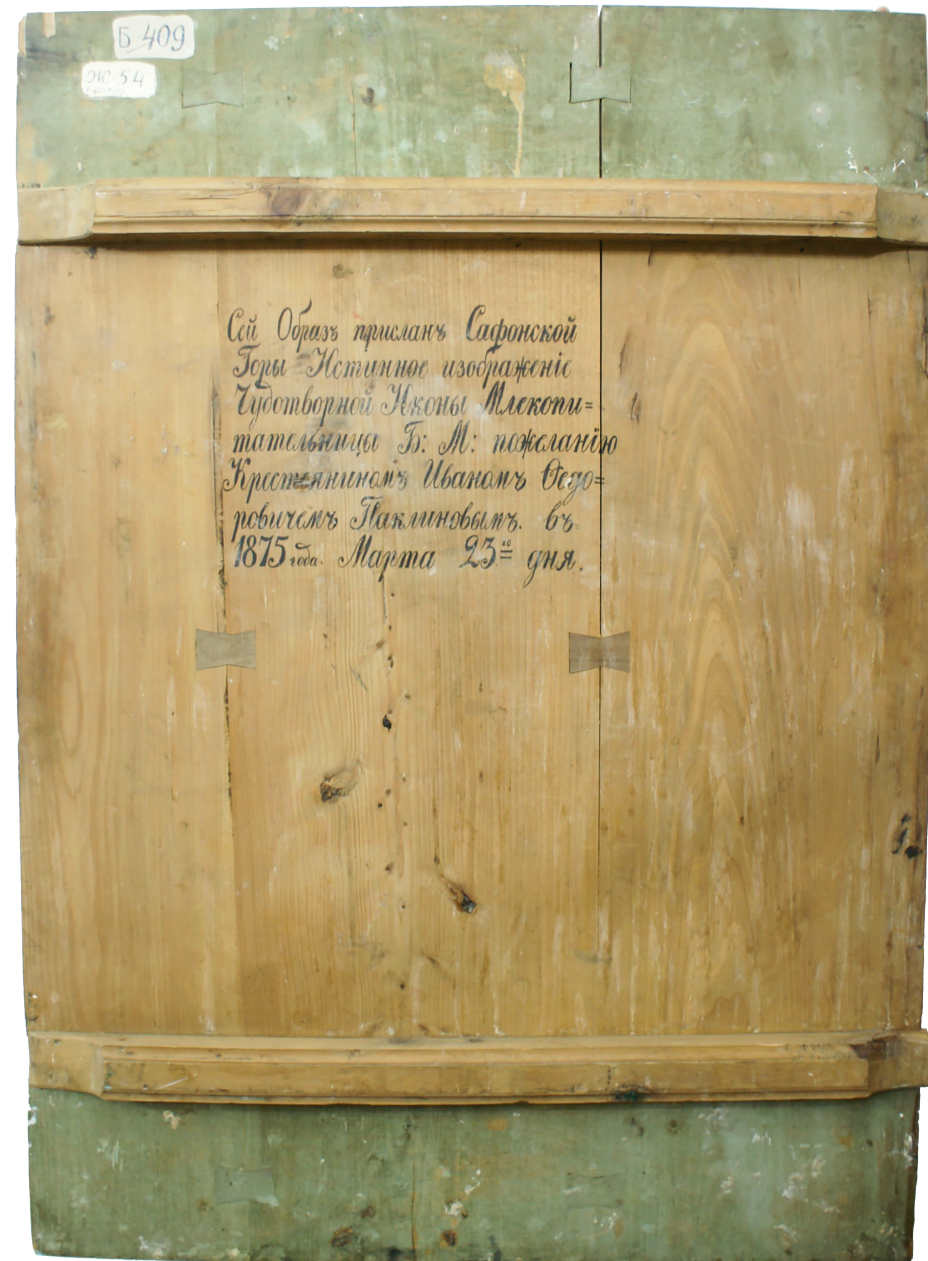 Б-409
ЖС-54
Сей Образъ присланъ Сафонской
Горы Истинное изображеніе
Чудотворной Иконы Млекопи=
тательница Б: М: пожеланію
Крестьяниномъ Иваномъ Ѳедо=
ровичемъ Паклиновымъ. въ
1875 года. Марта 23го дня.